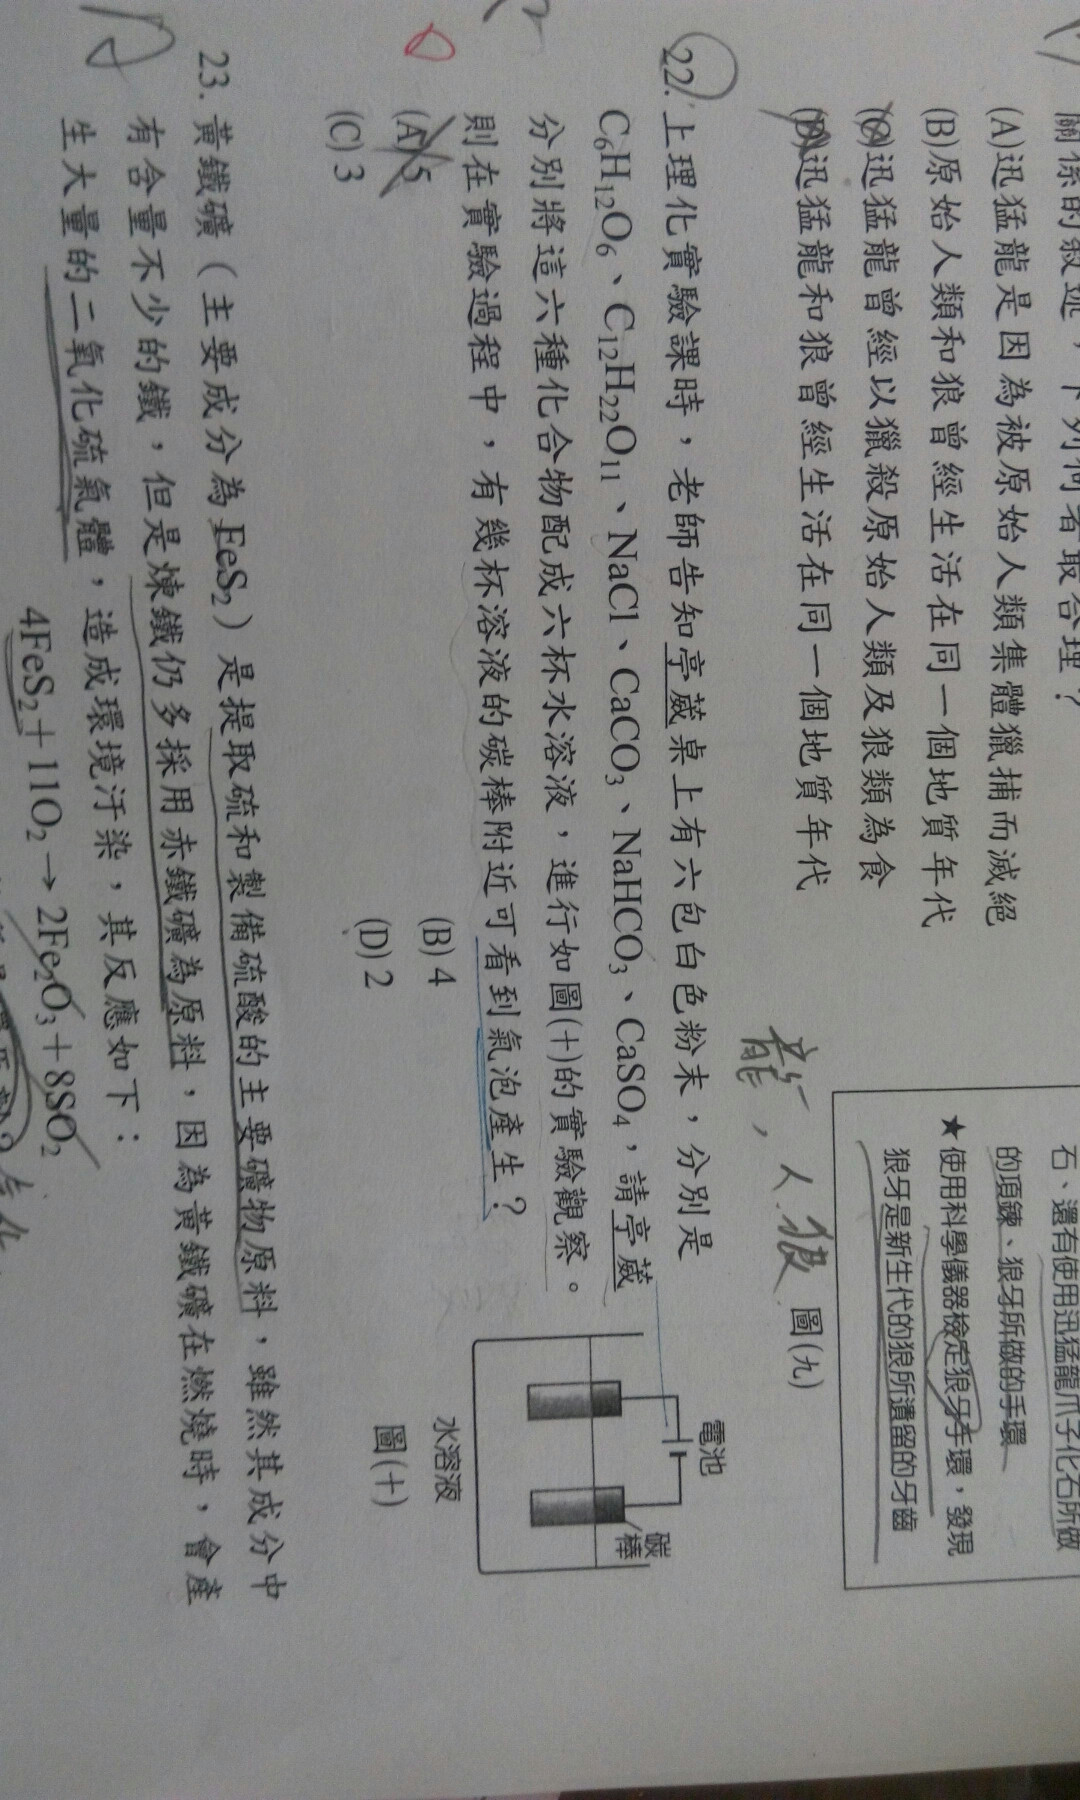 關係的敘述，下列何者最合理？
(A)迅猛龍是因為被原始人類集體獵捕而滅絕
(B)原始人類和狼曾經生活在同一個地質年代
(C)迅猛龍曾經以獵殺原始人類及狼類為食
(D)迅猛龍和狼曾經生活在同一個地質年代
石、還有使用迅猛龍爪子化石所做
的項鍊、狼牙所做的手環
★使用科學儀器檢定狼牙手環，發現
狼牙是新生代的狼所遺留的牙齒
龍，人.狼
圖(九)
22.上理化實驗課時，老師告知亭葳桌上有六包白色粉末，分別是
C6H12O6、C12H22O11、NaCl、CaCO3、NaHCO3、CaSO4，請亭葳
分別將這六種化合物配成六杯水溶液，進行如圖(十)的實驗觀察。
則在實驗過程中，有幾杯溶液的碳棒附近可看到氣泡產生？
(A) 5
(B) 4
(C) 3
(D) 2
電池
碳
棒
水溶液
圖(十)
23. 黃鐵礦（主要成分為FeS2）是提取硫和製備硫酸的主要礦物原料，雖然其成分中
有含量不少的鐵，但是煉鐵仍多採用赤鐵礦為原料，因為黃鐵礦在燃燒時，會產
生大量的二氧化硫氣體，造成環境汙染，其反應如下：
4FeS2＋11O2→2Fe2O3＋8SO2